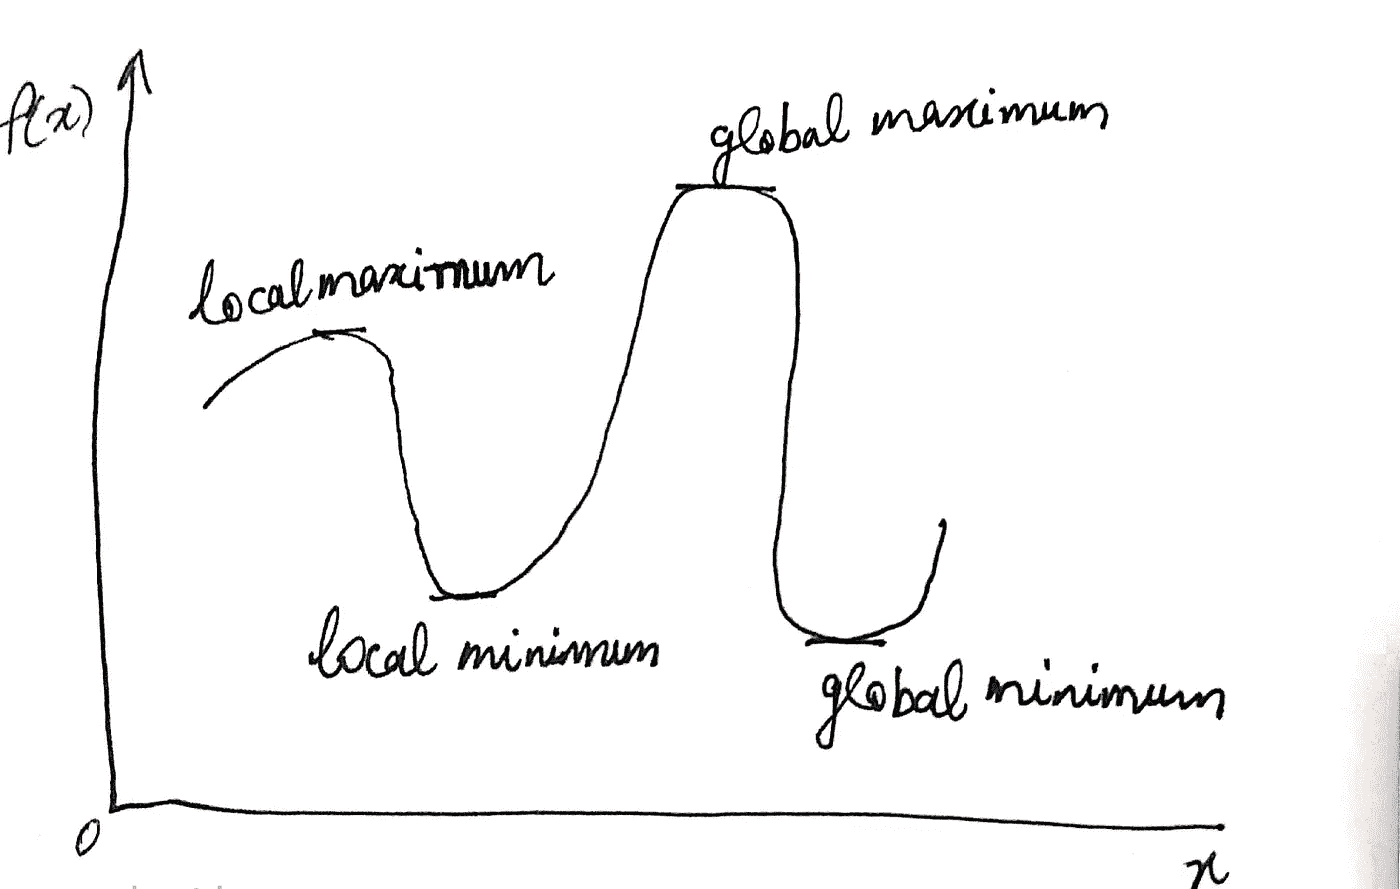 f(x)
global maximum
local maximum
local minimum
global minimum
0
x